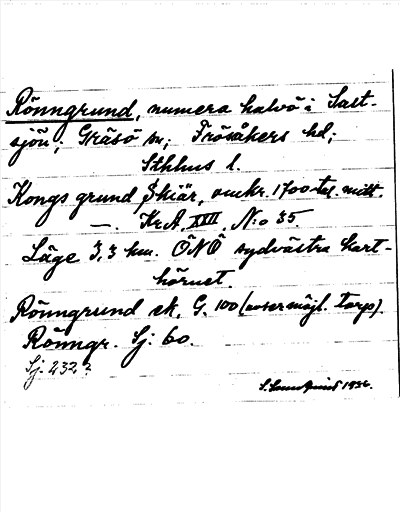 Rönngrund, numera halvö i Salt-
sjön; Gräsö sn; Frösåkers hd;
Sthlms l.
Kongs grund Skiär, omkr. 1700-tal. mitt.
—. Kr.A. XXII. N:o 35.
Läge 3,3 km. ÖNÖ sydvästra kart-
hörnet.
Rönngrund ek. G. 100 (avser möjl. torp).
Rönngr. Sj. 60.
Sj. 232?
1936.